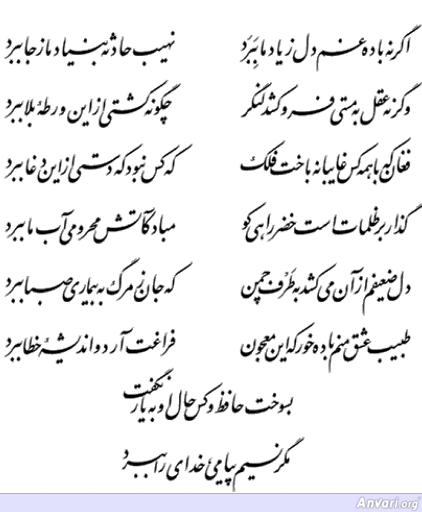 اگر نه باده غم دل ز یاد ما ببرد نهیب حادثه بنیاد ما ز جا ببرد
وگر نه عقل به مستی فروکشد لنگر چگونه کشتی از این ورطهٔ بلا ببرد
فغان که با همه کس غایبانه باخت فلک که کس نبود که دستی از این دغا ببرد
گذار بر ظلمات است خضر راهی کو مباد کآتش محرومی آب ما ببرد
دل ضعیفم از آن می‌کشد به طرف چمن که جان ز مرگ به بیماری صبا ببرد
طبیب عشق منم باده خور که این معجون فراغت آرد و اندیشهٔ خطا ببرد
بسوخت حافظ و کس حال او به یار نگفت
مگر نسیم پیامی خدای را ببرد
Anvari.org